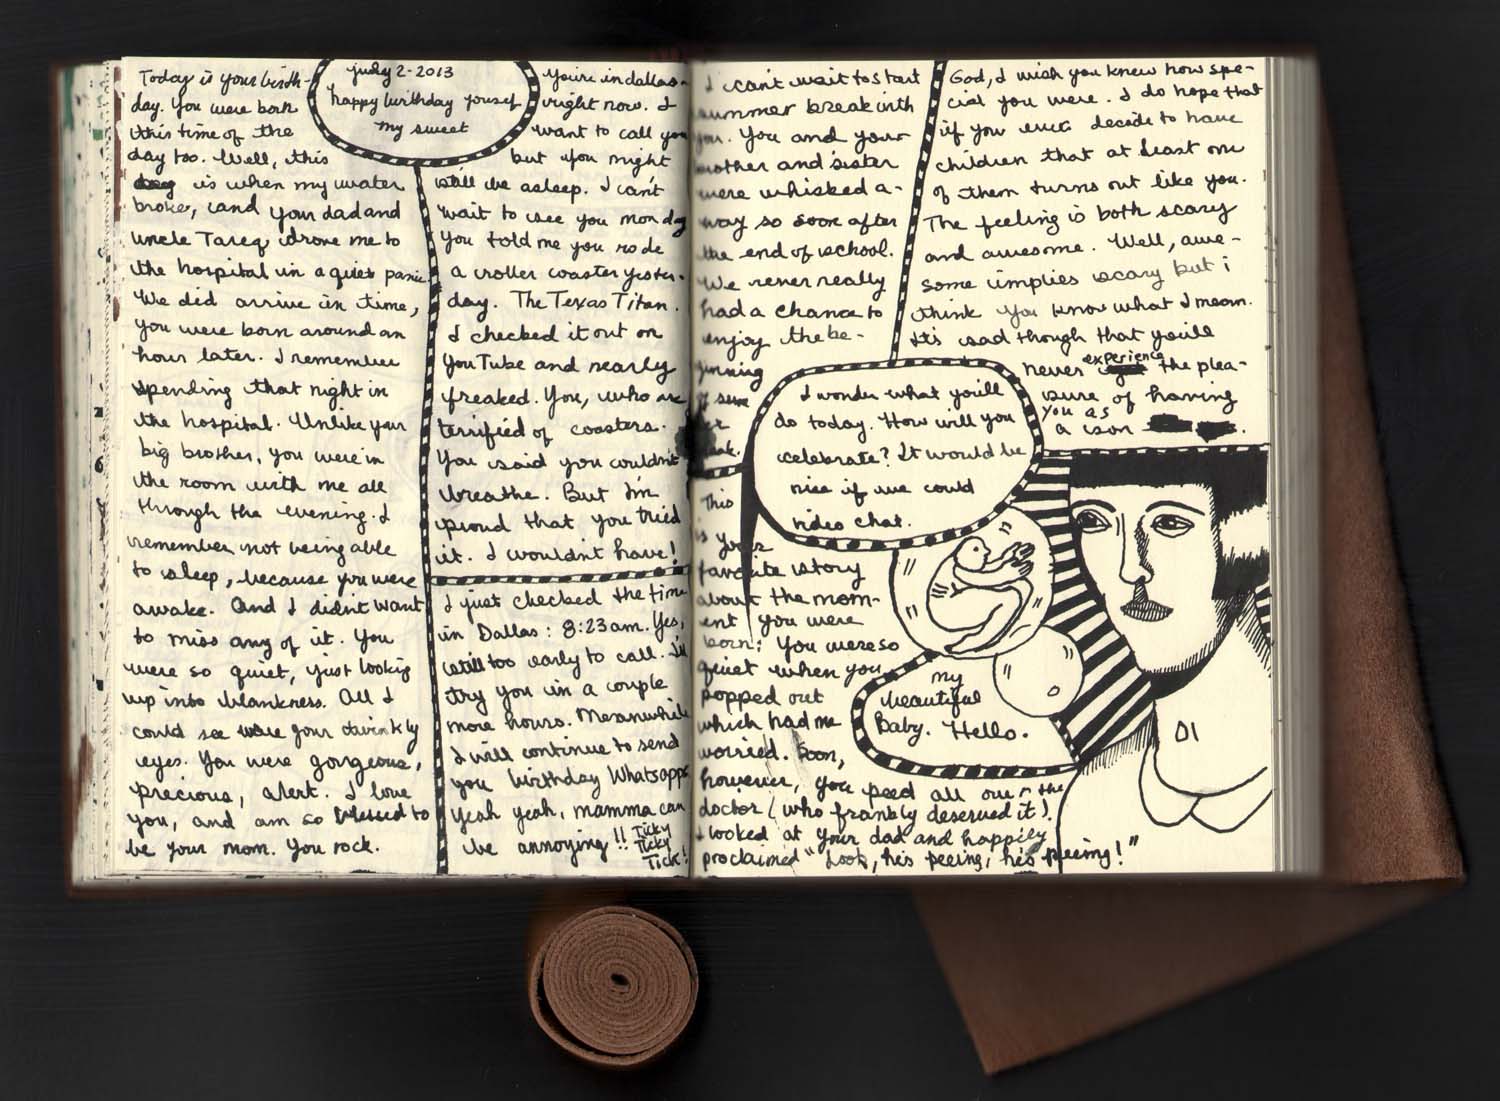 july 2-2013
happy birthday yousef
my sweet
Today is your birth-
day. You were born
this time of the
day too. Well, this
is when my water
broke, and your dad and
uncle Tareq drove me to
the hospital in a quiet panic
We did arrive in time,
you were born around an
hour later. I remember
spending that night in
the hospital. Unlike your
big brother, you were in
the room with me all
through the evening. I
remember not being able
to sleep, because you were
awake. And I didn't want
to miss any of it. You
were so quiet, just looking
up into blankness. All I
could see were your twinkly
eyes. You were gorgeous,
precious, alert. I love
you, and am so blessed to
be your mom. You rock.
You're in dallas
right now. I
want to call you
but you might
still be asleep. I can't
wait to see you monday
You told me you rode
a roller coaster yester-
day. The Texas Titan.
I checked it out on
YouTube and nearly
freaked. You, who are
terrified of coasters.
You said you couldn't
breathe. But I'm
proud that you tried
it. I wouldn't have!
I just checked the time
in Dallas: 8:23am. Yes,
still too early to call. I'll
try you in a couple
more hours. Meanwhile
I will continue to send
you birthday Whatsapps
Yeah yeah, mamma can
be annoying!!
Ticky
Ticky
Tick!
I can't wait to start
summer break with
you. You and your
brother and sister
were whisked a-
way so soon after
the end of school.
We never really
had a chance to
enjoy the be-
ginning
of sum
mer
break.
This
is your
favorite story
about the mom-
ent you were
born: You were so
quiet when you
popped out
which had me
worried. Soon,
however, you peed all over the
doctor (who frankly deserved it!)
I looked at your dad and happily
proclaimed "Look, he's peeing, he's peeing!"
God, I wish you knew how spe-
cial you were. I do hope that
if you ever decide to have
children that at least one
of them turns out like you.
The feeling is both scary
and awesome. Well, awe-
some implies scary but i
think you know what I mean.
It's sad though that you'll
never experience the plea-
sure of having
you as
a son.
I wonder what you'll
do today. How will you
celebrate? It would be
nice if we could
video chat.
my
beautiful
Baby. Hello.